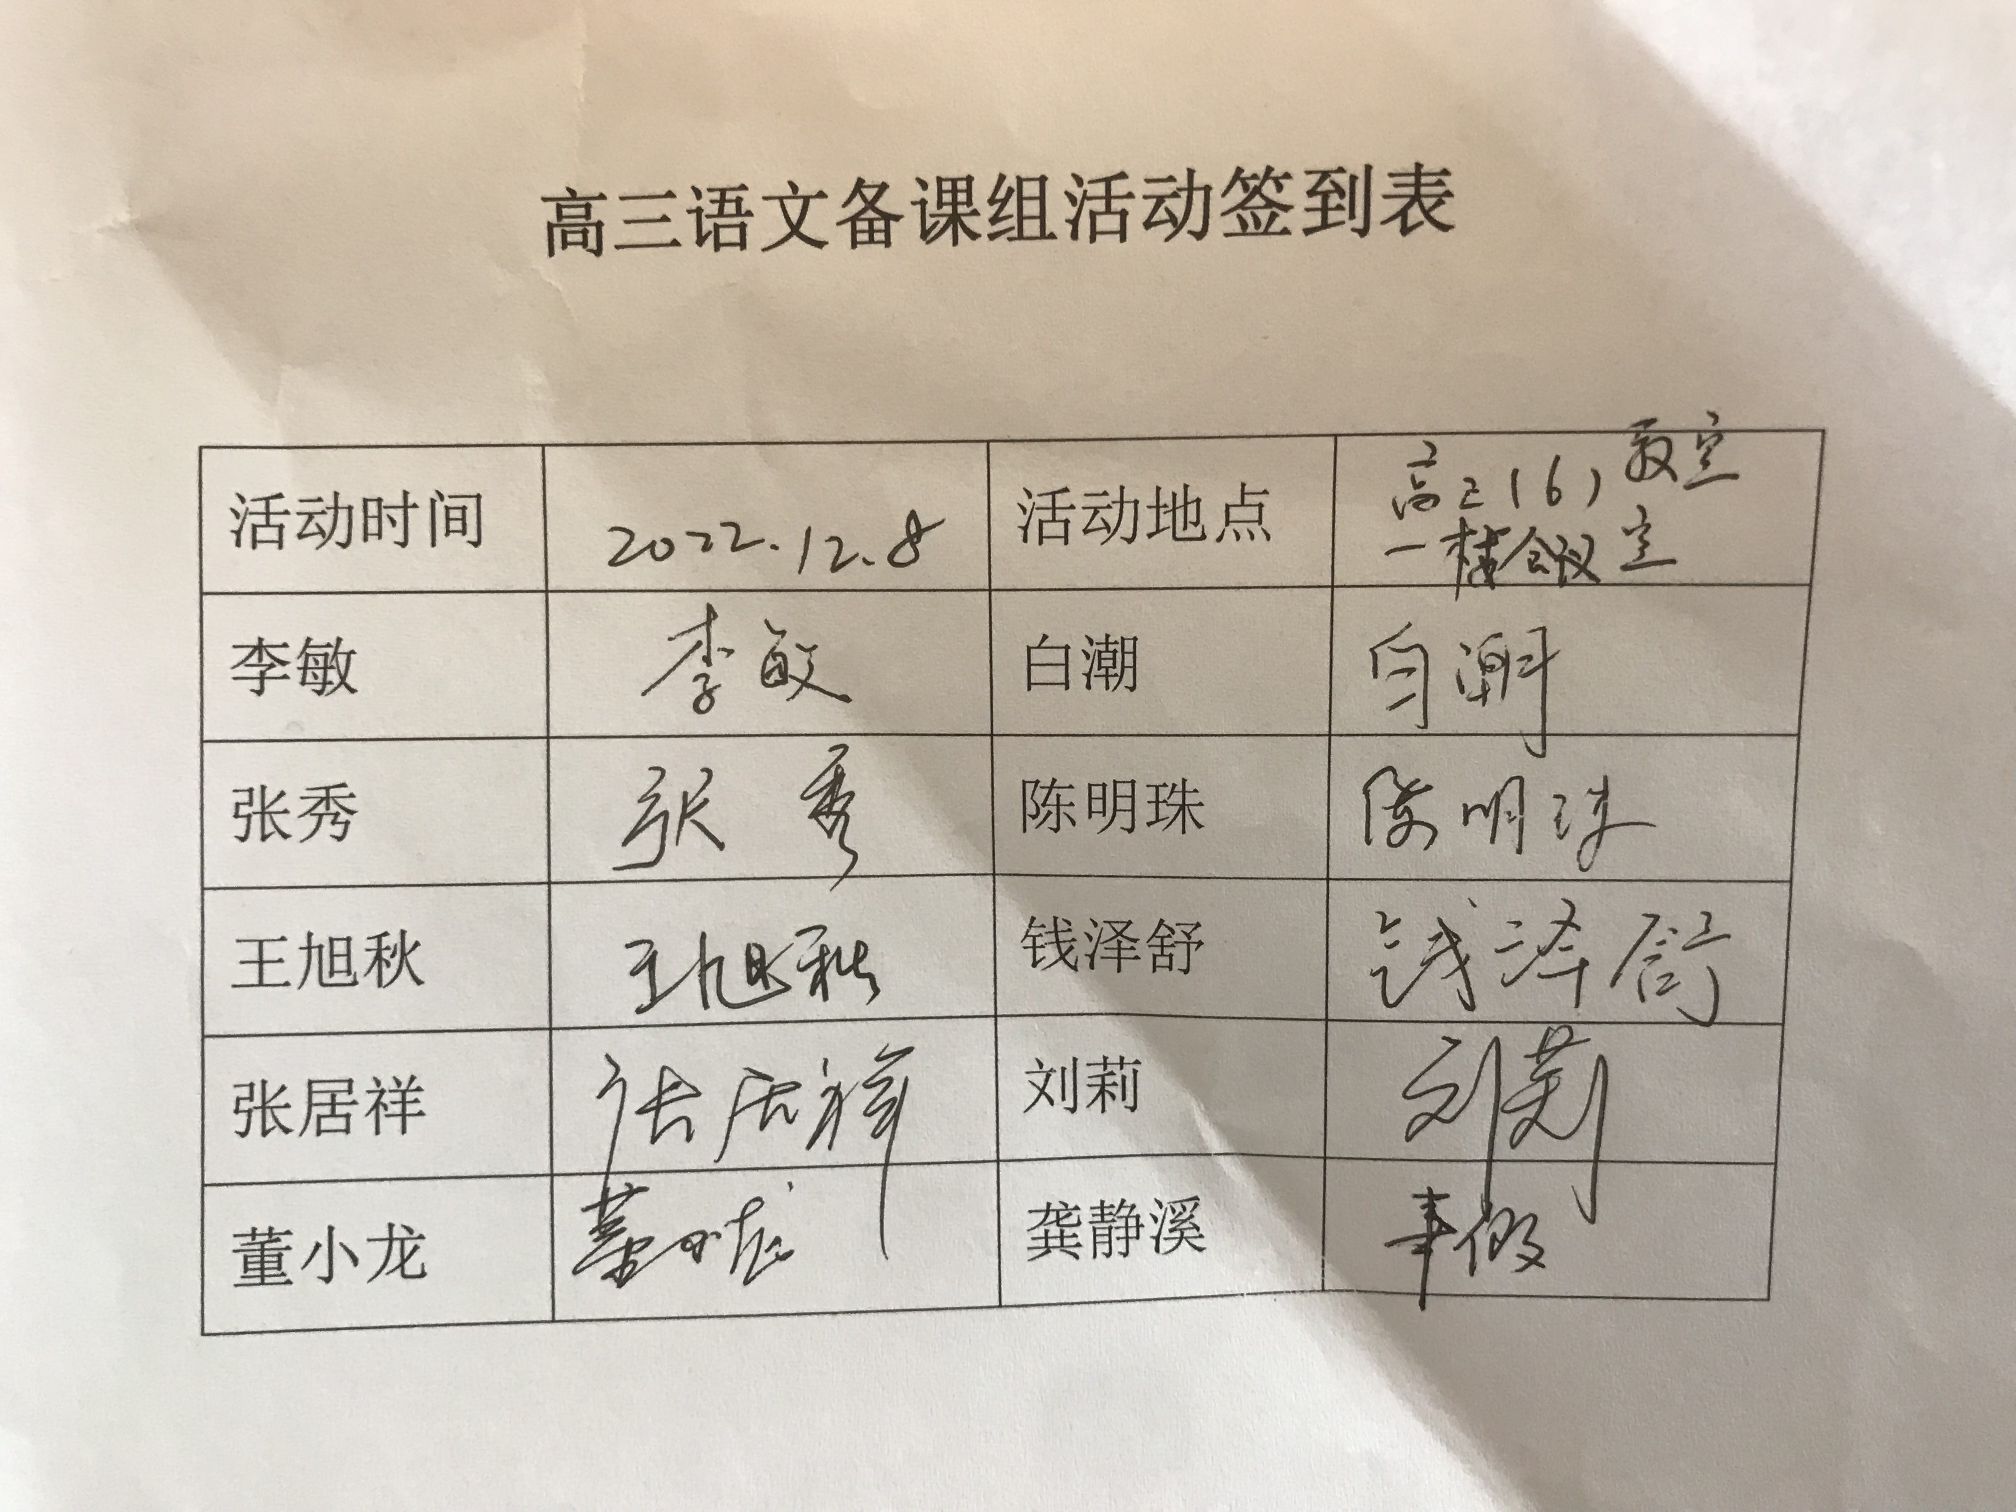 高三语文备课组活动签到表
活动时间 2022.12.8 活动地点 高三(6)教室
一楼会议室
李敏 李敏 白潮 白潮
张秀 张秀 陈明珠 陈明珠
王旭秋 王旭秋 钱泽舒 钱泽舒
张居祥 张居祥 刘莉 刘莉
董小龙 董小龙 龚静溪 事假